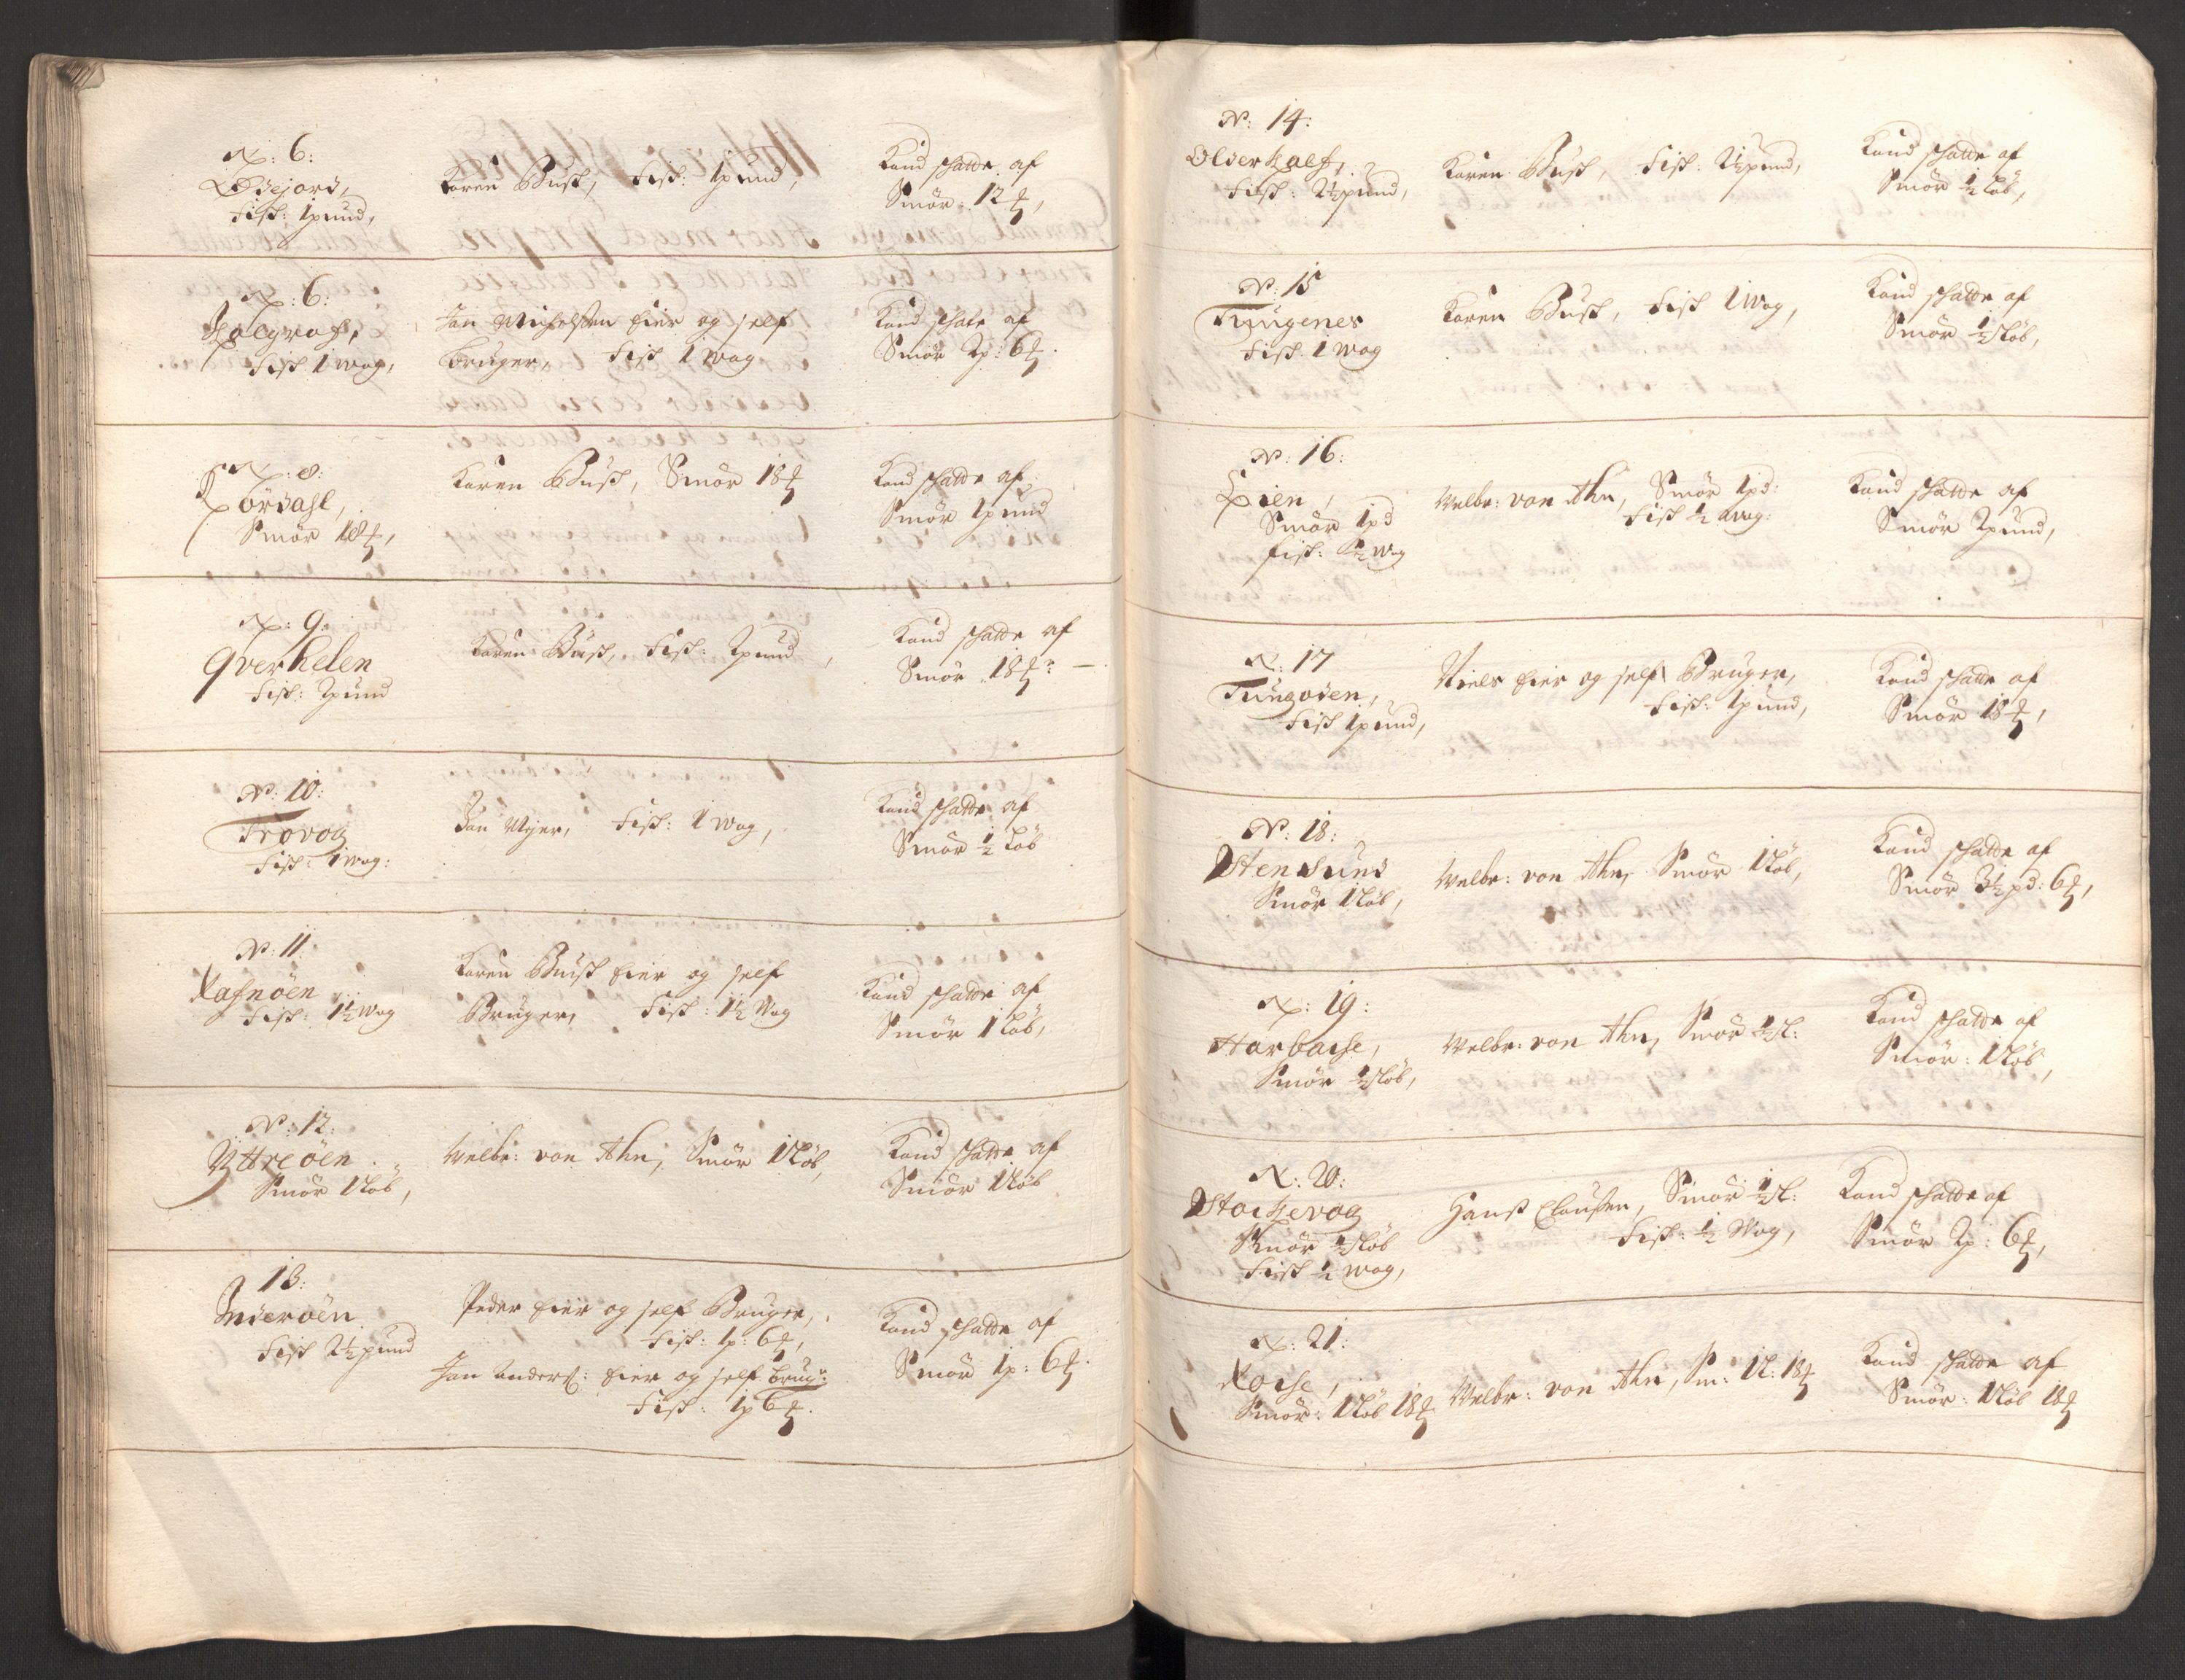 N: 6:
Ødejord,
Fisk: 1 pund,
Karen Busk, Fisk: 1 pund,
Kand skatte af
Smör 12 ℔,
N: 6:
Fisk 1 wog,
Jan Michelsen Eier og self
Bruger, Fisk 1 wog
Kand skate af
Smör 2p: 6℔.
N: 8:
Kørdahl,
Smör 18℔,
Karen Busk, Smör 18℔
Kand skatte af
Smör 1 pund
N: 9:
Qverhelen
Fisk: 2 pund
Karen Busk, Fisk: 2 pund,
Kand skatte af
Smör 18℔: —
N: 10:
Trovog
Fisk: 1 wog:
Jan Myer, Fisk: 1 wog,
Kand skatte af
Smör ½ Löb
N: 11:
Rafnöen
Fisk: 1½ wog
Karen Busk Eier og self
Bruger, Fisk: 1½ Wog
Kand skatte af
Smör 1 Löb,
N: 12:
Yttreöen
Smör 1 Löb,
Welbr: von Ahn, Smör 1 Löb,
Kand skatte af
Smör 1 Löb
13:
Inderöen
Fisk 2½ pund
Peder Eier og self Bruger,
Fisk: 1p: 6℔,
Jan Anders: Eier og self brug:
Fisk: 1p 6℔.
Kand skatte af
Smör 1p: 6℔.
N: 14:
Olderkalf,
Fisk: 2½ pund,
Karen Busk, Fisk: 2½ pund,
Kand skatte af
Smör ½ Löb,
N: 15
Tungenes
Fisk 1 wog
Karen Busk, Fisk 1 Wog,
Kand skatte af
Smör ½ Löb,
N: 16:
Lien,
Smör 1 pd
Fisk: ½ wog
Welbr: von Ahn, Smör 1 pd:
Fisk ½ wog:
Kand skatte af
Smör 2 pund,
N: 17
Tungoden,
Fisk 1 pund,
Niels Eier og self Bruger,
Fisk: 1 pund,
Kand skatte af
Smör 18℔,
N: 18:
Stensund
Smör 1 Löb,
Welbr: von Ahn, Smör 1 Löb,
Kand skatte af
Smör 3½ pd: 6℔,
N: 19:
Harbache,
Smör ½ Löb,
Welbr: von Ahn, Smör ½ L:
Kand skatte af
Smör: 1 Löb,
N: 20:
Stockevog
Smör ½ Löb
Fisk ½ wog,
Hans Clausen, Smör ½ L:
Fisk: ½ Wog,
Kand skatte af
Smör 2p: 6℔,
N: 21:
Smör: 1 Löb 18℔
Welbr: von Ahn, Sm: 1 L: 18℔
Kand skatte af
Smör: 1 Löb 18℔